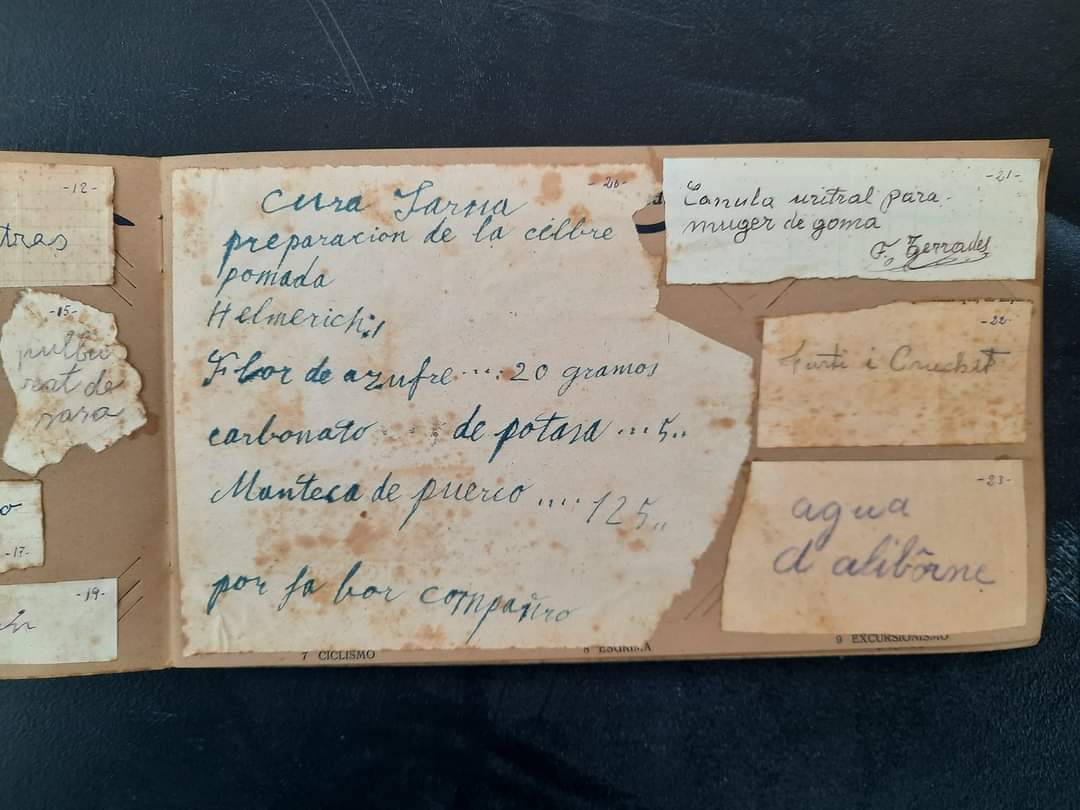 -12-
tras
-15-
pulbu
rat de
rara
o
-17-
-19-
-20-
Cura Sarna
preparacion de la célbre
pomada
Helmerich;,
Flor de azufre ....: 20 gramos
carbonato de potasa ... 5,,
Manteca de puerco .... 125,,
por fa bor compañro
-21-
Canula uritral para
muger de goma
F. Terrades
-22-
i Cruchet
-23-
agua
d alibôrne
7 CICLISMO
8 ESGRIMA
9 EXCURSIONISMO